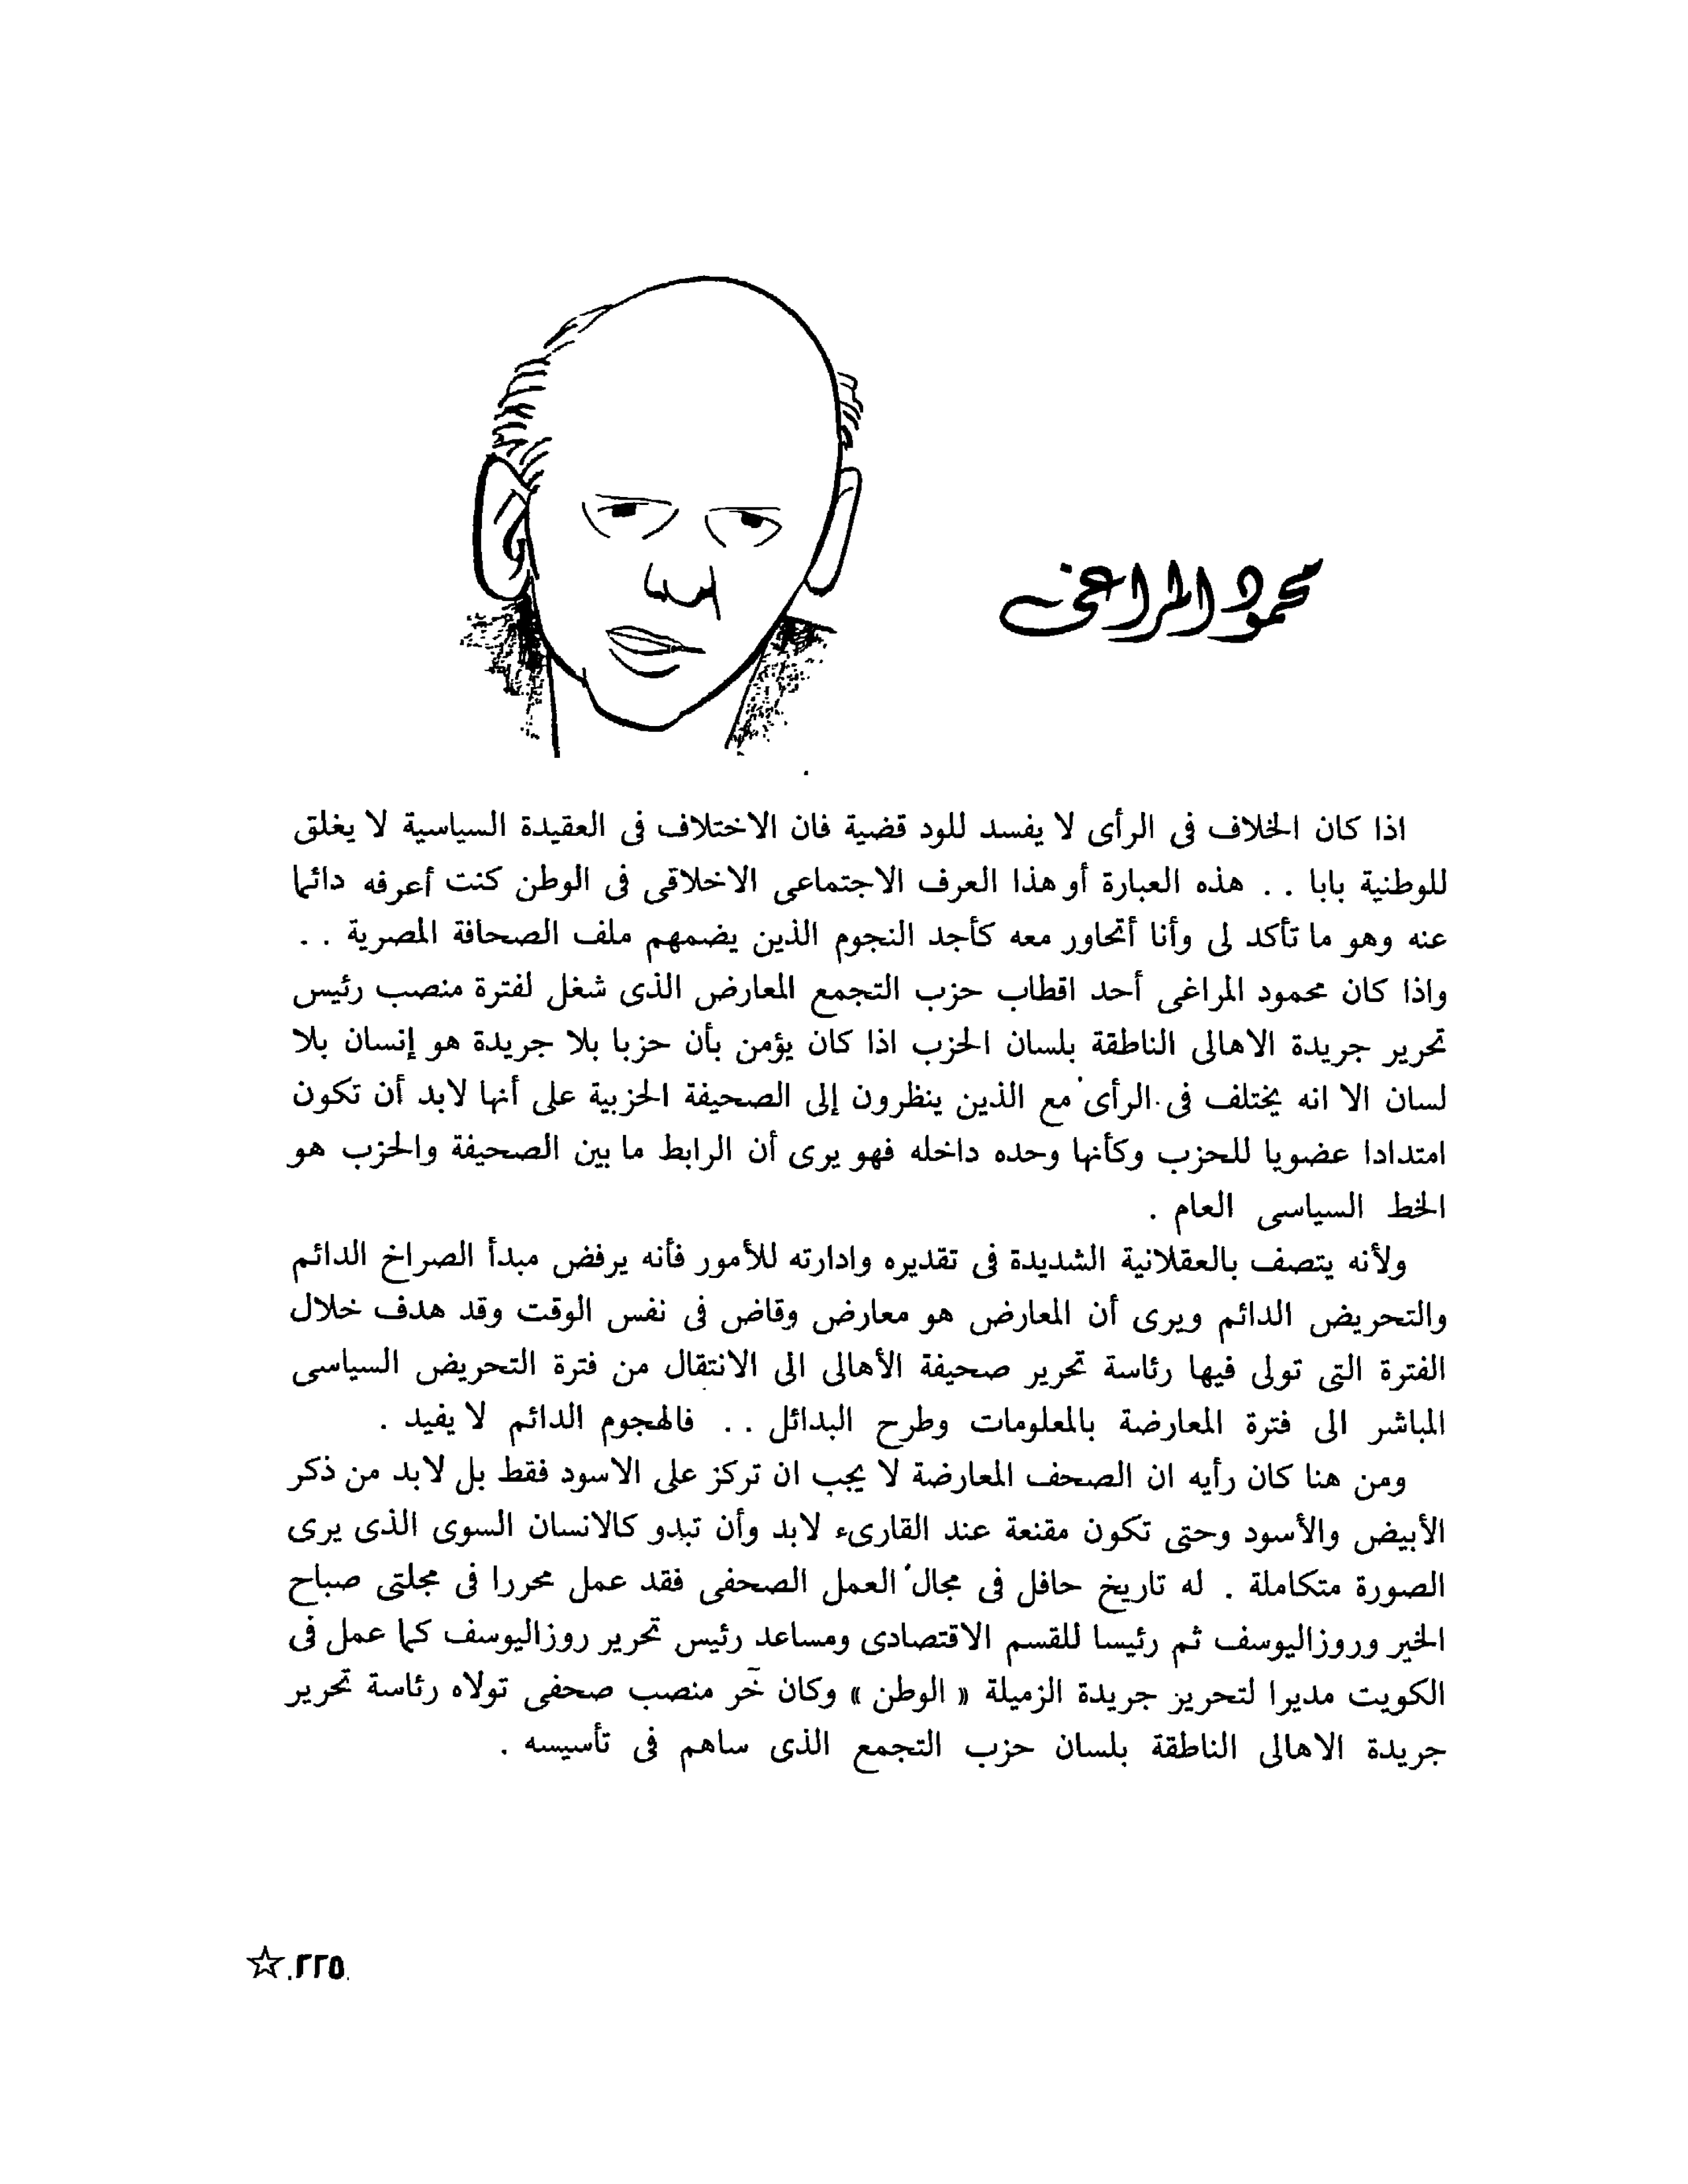 محمود المراغى
اذا كان الخلاف فى الرأى لا يفسد للود قضية فان الاختلاف فى العقيدة السياسية لا يغلق
للوطنية بابا . . هذه العبارة أو هذا العرف الاجتماعى الاخلاقى فى الوطن كنت أعرفه دائما
عنه وهو ما تأكد لى وأنا أتحاور معه كأجد النجوم الذين يضمهم ملف الصحافة المصرية . .
واذا كان محمود المراغى أحد اقطاب حزب التجمع المعارض الذى شغل لفترة منصب رئيس
تحرير جريدة الاهالى الناطقة بلسان الحزب اذا كان يؤمن بأن حزبا بلا جريدة هو إنسان بلا
لسان الا انه يختلف فى الرأى مع الذين ينظرون إلى الصحيفة الحزبية على أنها لابد أن تكون
امتدادا عضويا للحزب وكأنها وحده داخله فهو يرى أن الرابط ما بين الصحيفة والحزب هو
الخط السياسى العام .
ولأنه يتصف بالعقلانية الشديدة فى تقديره وادارته للأمور فأنه يرفض مبدأ الصراخ الدائم
والتحريض الدائم ويرى أن المعارض هو معارض وقاض فى نفس الوقت وقد هدف خلال
الفترة التى تولى فيها رئاسة تحرير صحيفة الأهالى الى الانتقال من فترة التحريض السياسى
المباشر الى فترة المعارضة بالمعلومات وطرح البدائل . . فالهجوم الدائم لا يفيد .
ومن هنا كان رأيه ان الصحف المعارضة لا يجب ان تركز على الاسود فقط بل لابد من ذكر
الأبيض والأسود وحتى تكون مقنعة عند القارىء لابد وأن تبدو كالانسان السوى الذى يرى
الصورة متكاملة . له تاريخ حافل فى مجال العمل الصحفى فقد عمل محررا فى مجلتى صباح
الخير وروزاليوسف ثم رئيسا للقسم الاقتصادى ومساعد رئيس تحرير روزاليوسف كما عمل فى
الكويت مديرا لتحريز جريدة الزميلة « الوطن » وكان خٓر منصب صحفى تولاه رئاسة تحرير
جريدة الاهالى الناطقة بلسان حزب التجمع الذى ساهم فى تأسيسه .
٢٢٥